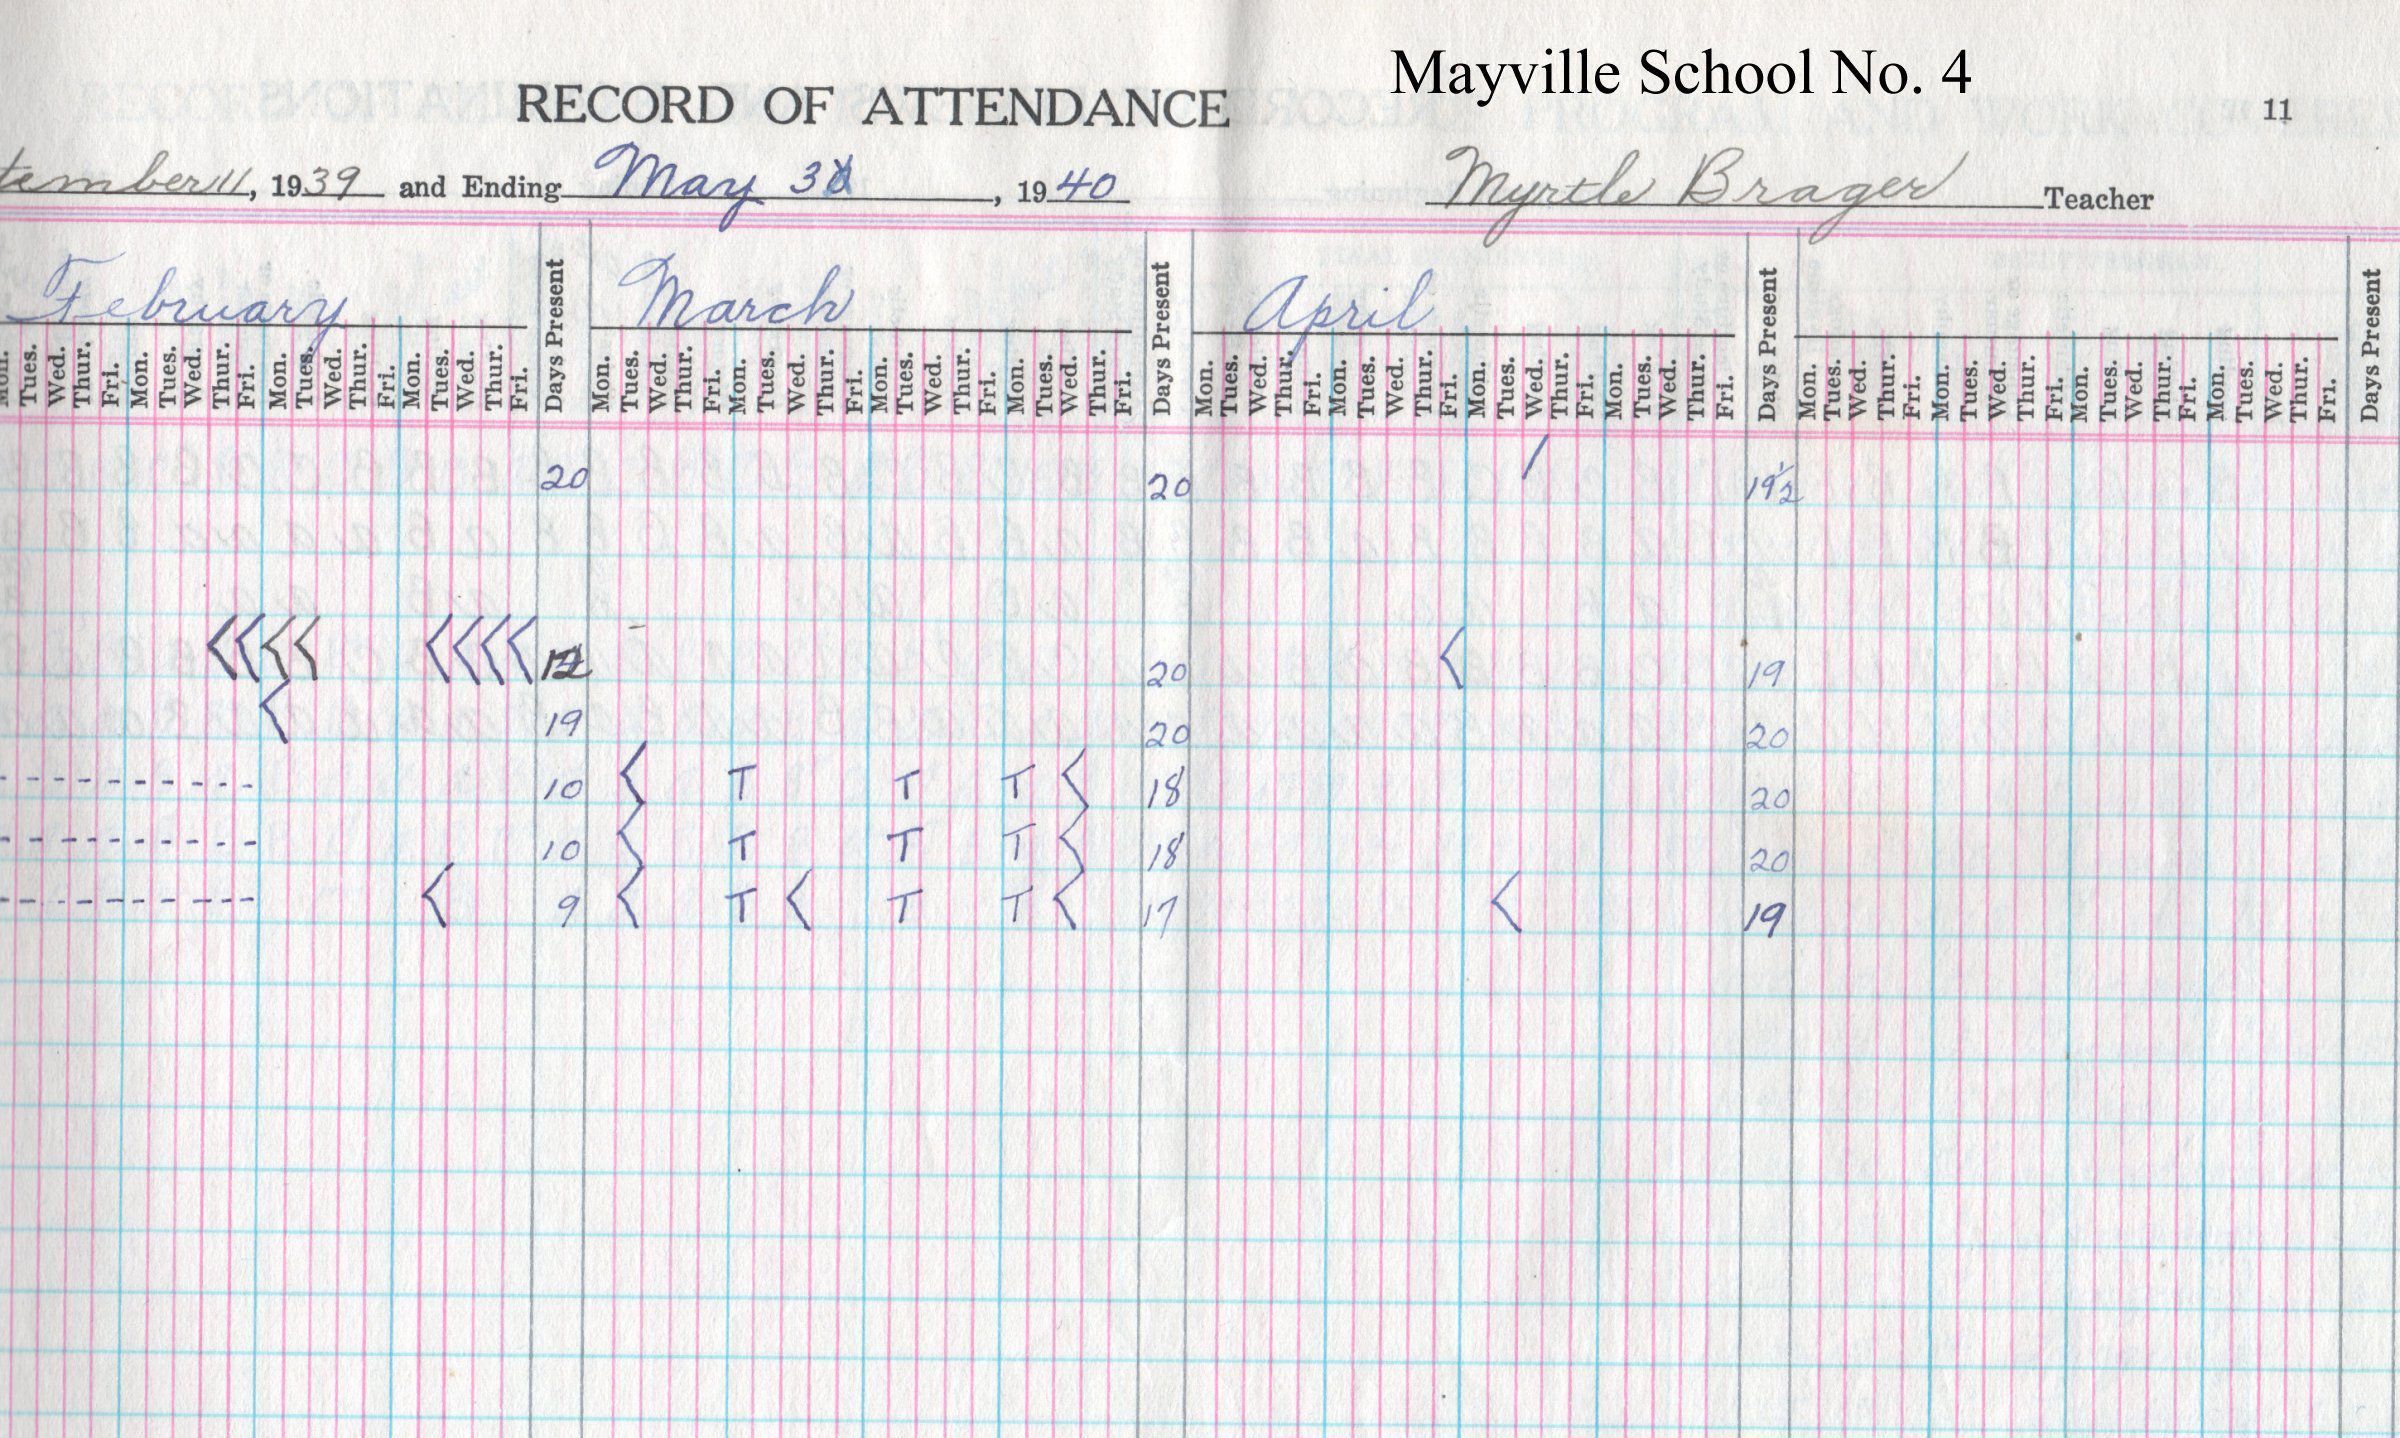 Mayville School No. 4
RECORD OF ATTENDANCE
11
tember 11, 1939 and Ending May 3 , 1940 Myrtle Brager Teacher
February Days Present March Days Present April Days Present Days Present
Mon. Tues. Wed. Thur. Fri. Mon. Tues. Wed. Thur. Fri. Mon. Tues. Wed. Thur. Fri. Mon. Tues. Wed. Thur. Fri. Mon. Tues. Wed. Thur. Fri. Mon. Tues. Wed. Thur. Fri. Mon. Tues. Wed. Thur. Fri. Mon. Tues. Wed. Thur. Fri. Mon. Tues. Wed. Thur. Fri. Mon. Tues. Wed. Thur. Fri. Mon. Tues. Wed. Thur. Fri. Mon. Tues. Wed. Thur. Fri. Mon. Tues. Wed. Thur. Fri. Mon. Tues. Wed. Thur. Fri. Mon. Tues. Wed. Thur. Fri. Mon. Tues. Wed. Thur. Fri.
20 20 / 19 1/2
< < < < < < < < 12 - 20 < 19
< 19 20 20
- - - - - - - - - - 10 < T T T < 18 20
- - - - - - - - - - 10 < T T T < 18 20
- - - - - - - - - - < 9 < T < T T < 17 < 19